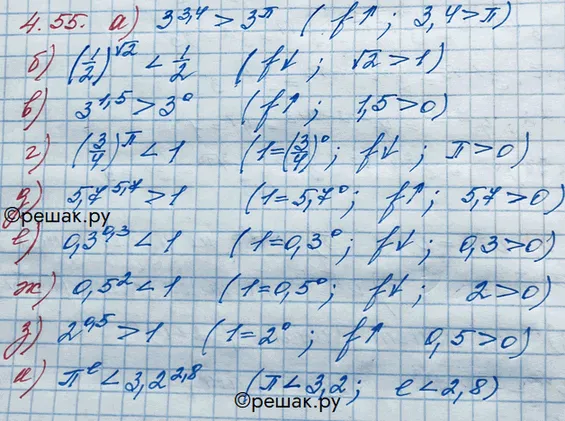 4.55. а) 3^3,4 > 3^π (f↑; 3,4>π)
б) (1/2)^√2 < 1/2 (f↓; √2>1)
в) 3^1,5 > 3^0 (f↑; 1,5>0)
г) (3/4)^π < 1 (1=(3/4)^0; f↓; π>0)
д) 5,7^5,7 > 1 (1=5,7^0; f↑; 5,7>0)
©решак.ру
е) 0,3^0,3 < 1 (1=0,3^0; f↓; 0,3>0)
ж) 0,5^2 < 1 (1=0,5^0; f↓; 2>0)
з) 2^0,5 > 1 (1=2^0; f↑ 0,5>0)
и) π^e < 3,2^2,8 (π<3,2; e<2,8)
©решак.ру